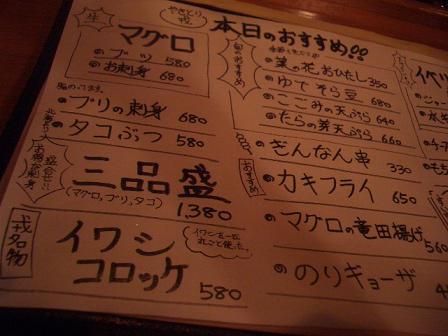 やきとり 戎
本日のおすすめ!!
生
マグロ
ブツ 580
お刺身 680
ブリの刺身 680
タコぶつ 580
三品盛
(マグロ,ブリ,タコ)
1,380
戎名物
イワシ
コロッケ
580
イワシを一匹
丸ごと使った
旬のおすすめ
菜の花おひたし 350
ゆでそら豆 680
こごみの天ぷら 640
たらの芽天ぷら 660
ぎんなん串 330
おすすめ
カキフライ 650
マグロの竜田揚げ 560
のりギョーザ